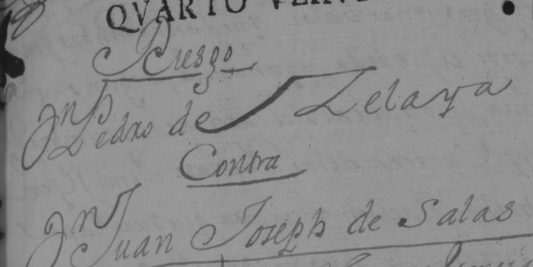 QVARTO VEIN
Riesgo
Dn Pedro de Zelaya
Contra
Dn Juan Joseph de Salas